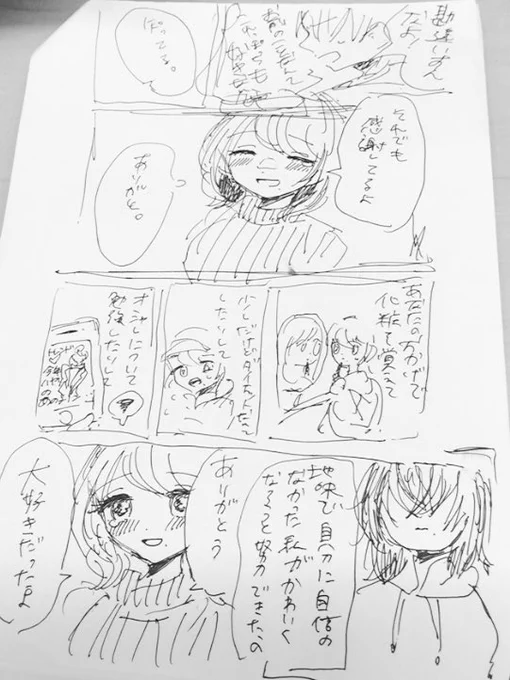 勘違いすん
なよ!
だってる。
それでも
感謝してるよ
ありがと。
あなたのおかげで
化粧で覚えて
少しだけどダイエットだって
したりして
オシャレについて
勉強したりして
地味で自分に自信の
なかった私がかわいく
なろうと努力できたの
ありがとう
大好きだったよ